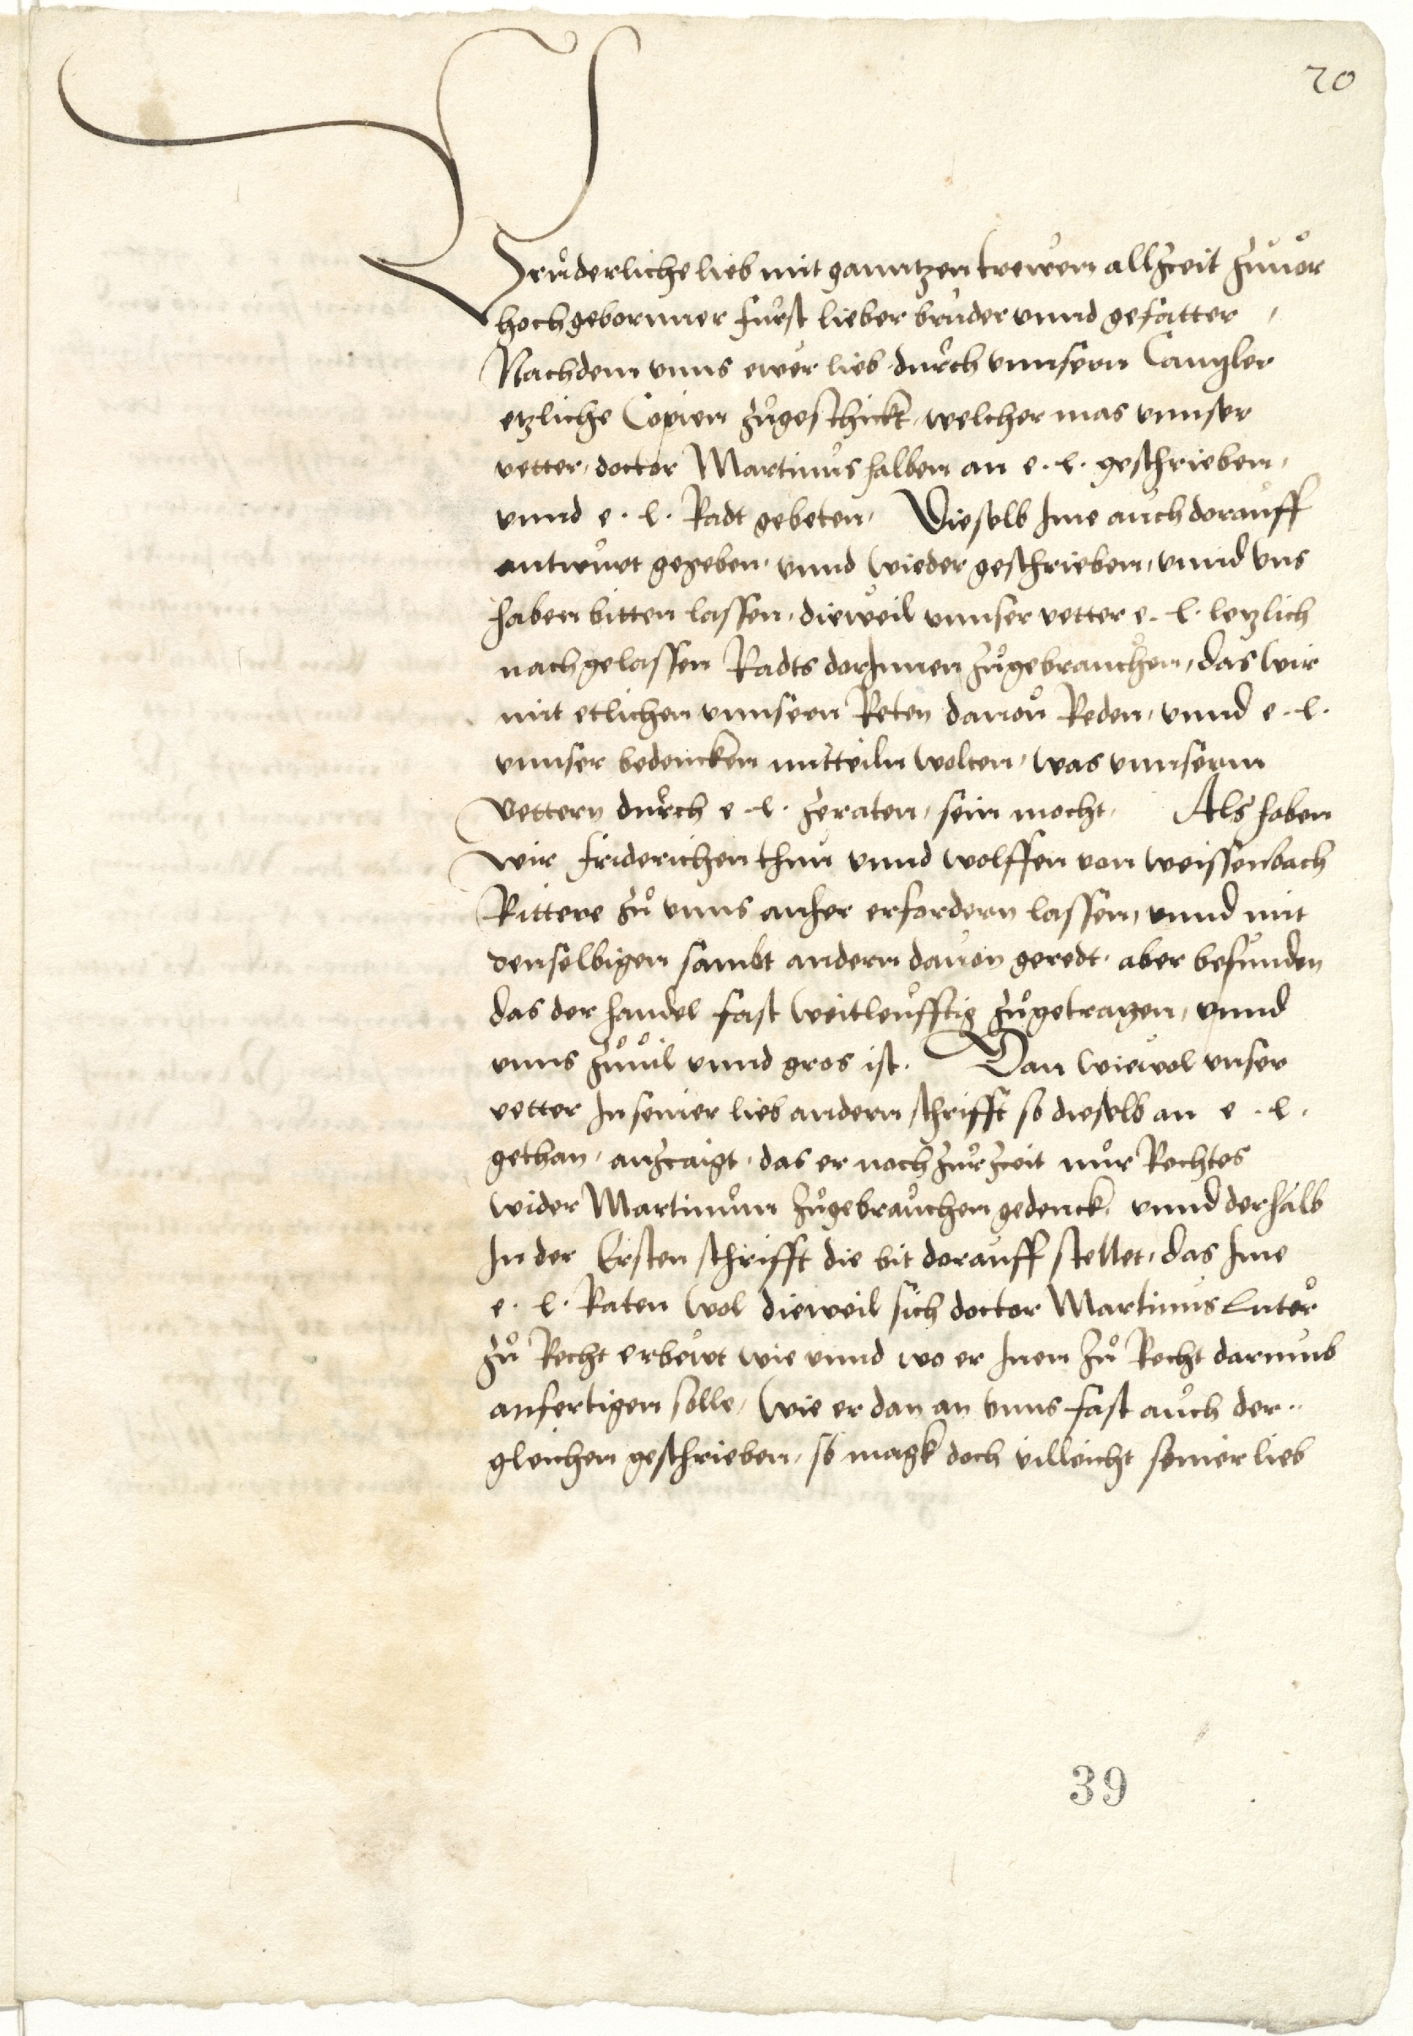 20
Brůderliche lieb mit ganntzen trewen allzceit zůuor
hochgebornner furst lieber bruder vnnd gefatter /
Nachdem vnns ewer lieb durch vnnsern Canzler
etzliche Copien zůgeschickt, welcher mas vnnser
vetter, doctor Martinus halben an e. l. geschrieben,
vnnd e. l. Radt gebeten, Dieselb Ime auch dorauff
antwurt gegeben, vnnd wieder geschrieben, vnnd vns
haben bitten lassen, dieweil vnnser vetter e. l. letzlich
nachgelassen Radts dorInnen zůgebrauchen, das wir
mit etlichen vnnsern Reten dauon Reden, vnnd e. l.
vnnser bedencken mitteiln wolten, was vnnserm
Vettern durch e. l. zeraten, sein mocht. Als haben
wir friderichen thun vnnd wolffen von weissenbach
Rittere zů vnns anher erfordern lassen, vnnd mit
denselbigen sambt andern dauon geredt, aber befunden
das der handel fast weitleufftig zůgetragen, vnnd
vnns zůuil vnnd gros ist. Dan wiewol vnser
vetter In seiner lieb andern schrifft so dieselb an e. l.
gethan, anzcaigt, das er noch zurzceit nur Rechtes
wider Martinum zůgebrauchen gedenck, vnnd derhalb
In der Ersten schrifft die bit dorauff stellet, das Ime
e. l. Raten wol dieweil sich doctor Martinus Luter
zů Recht erbewt wie vnnd wo er Inen zů Recht darumb
anfertigen solle, Wie er dan an vnns fast auch der..
gleichen geschrieben, so magk doch villeicht seiner lieb
39